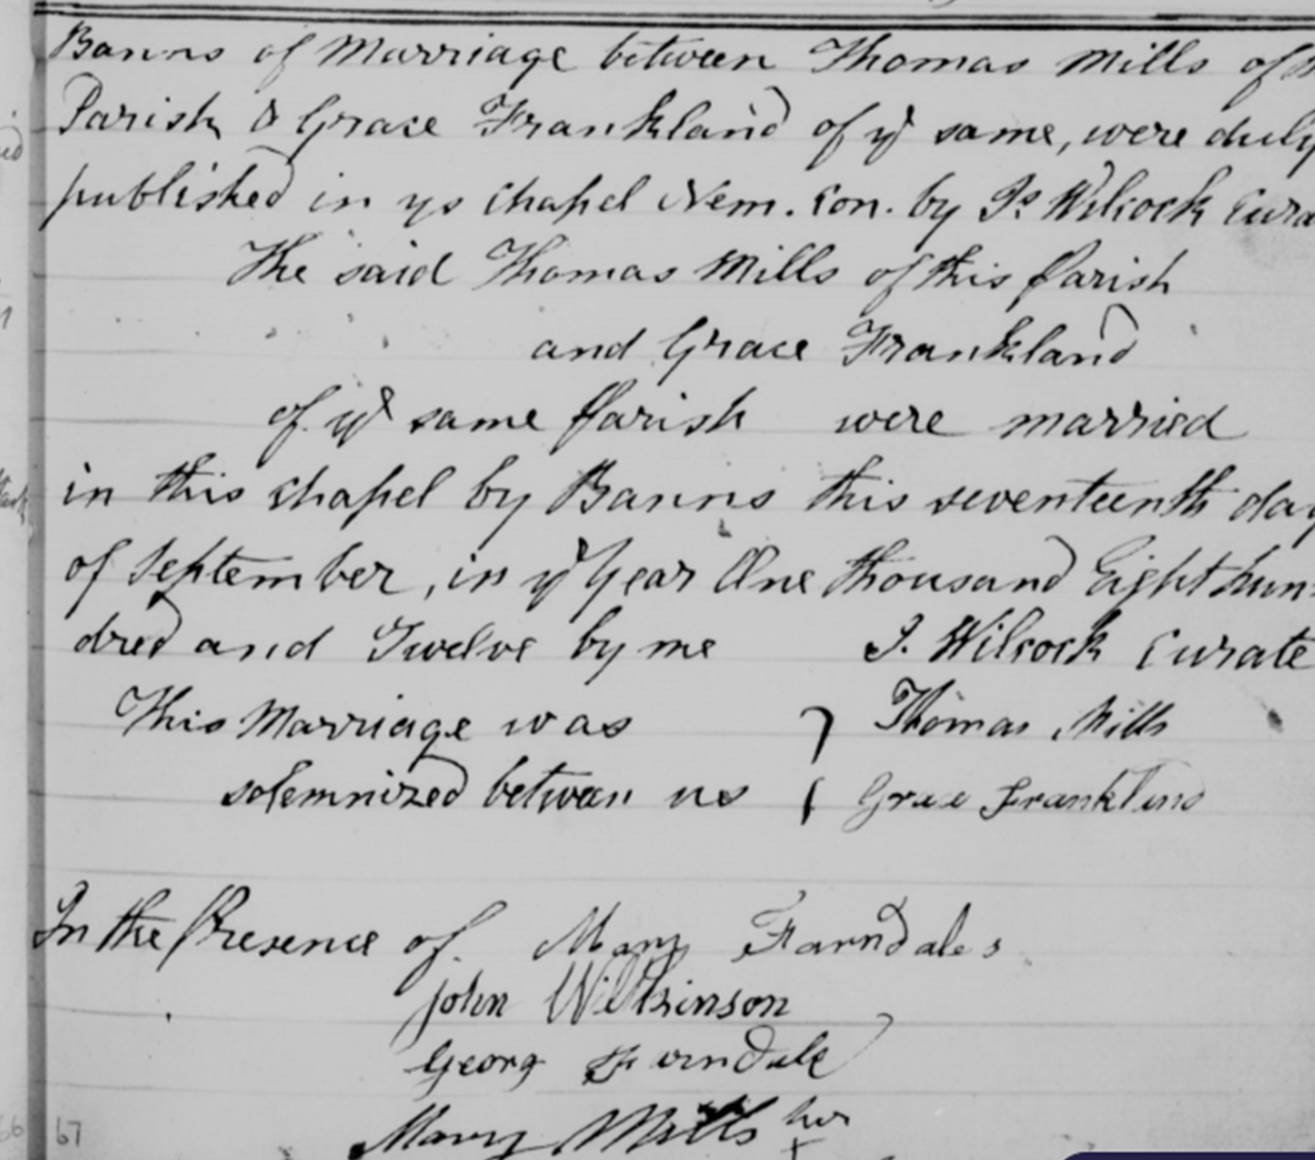 Banns of Marriage between Thomas Mills of
Parish & Grace Frankland of ye same, were duly
published in ys Chapel Nem. Con. by Js Wilcock Cura
The said Thomas Mills of this Parish
and Grace Frankland
of ye same Parish were married
in this Chapel by Banns this seventeenth day
of September, in ye Year One thousand Eight hun
dred and Twelve by me J. Wilcock Curate
This Marriage was Thomas Mills
solemnized between us Grace Frankland
In the Presence of Mary Farndales
John Wilkinson
Georg Farndale
Mary Mills her
x
66 67